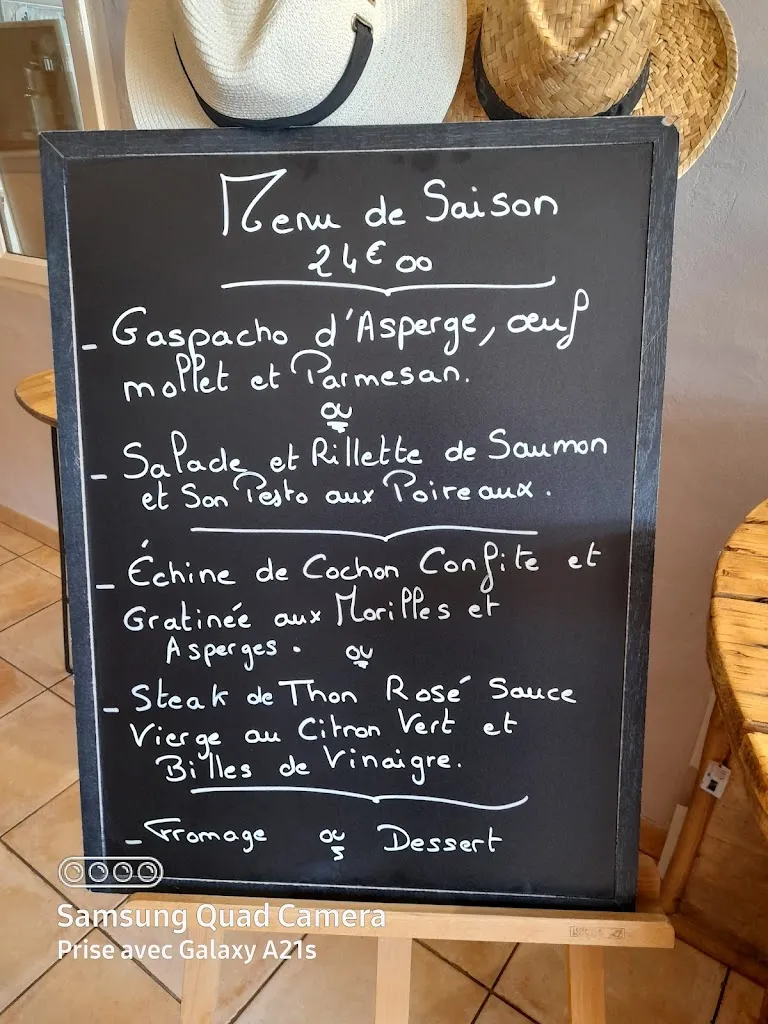 Menu de Saison
24€00
- Gaspacho d'Asperge, œuf
mollet et Parmesan.
ou
- Salade et Rillette de Saumon
et Son Pesto aux Poireaux.
- Échine de Cochon Confite et
Gratinée aux Morilles et
Asperges. ou
- Steak de Thon Rosé Sauce
Vierge au Citron Vert et
Billes de Vinaigre.
- Fromage ou Dessert
Samsung Quad Camera
Prise avec Galaxy A21s